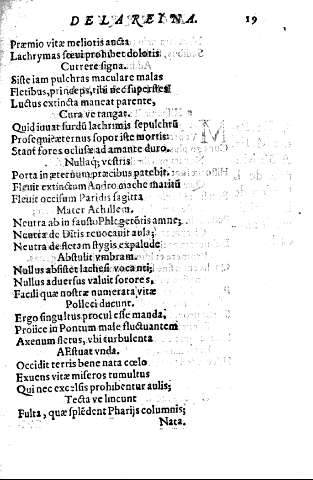 DE LA REYNA. 19
Præmio vitæ melioris aucta
Lachrymas sœvi prohibet doloris
Currere signa.
Siste iam pulchras maculare malas
Fletibus, princeps, tibi nec superstes
Luctus extincta maneat parente,
Cura ve tangat.
Quid iuuat surdū lachrimis sepulchrū
Prosequi? æternus sopor iste mortis:
Stant fores oclusæ ad amante duro.
Nullaq; vestris
Porta in æternum præcibus patebit.
Fleuit extinctum Andromache maritū
Fleuit occisum Paridis sagitta
Mater Achillem.
Neutra ab infausto Phlegetōris amne;
Neutra de Ditis reuocauit aula;
Neutra defletam stygis è palude
Abstulit vmbram.
Nullus absistet lachesis vocanti;
Nullus aduersus valuit sorores,
Facili quæ nostræ numerata vitæ
Polleci ducunt.
Ergo singultus procul esse manda,
Proijce in Pontum male fluctuantem
Axenum fletus, vbi turbulenta
AEstuat vnda.
Occidit terris bene nata cœlo
Exuens vitæ miseros tumultus
Qui nec excelsis prohibentur aulis;
Tecta ve lincunt
Fulta, quæ splēdent Pharijs columnis;
Nata.